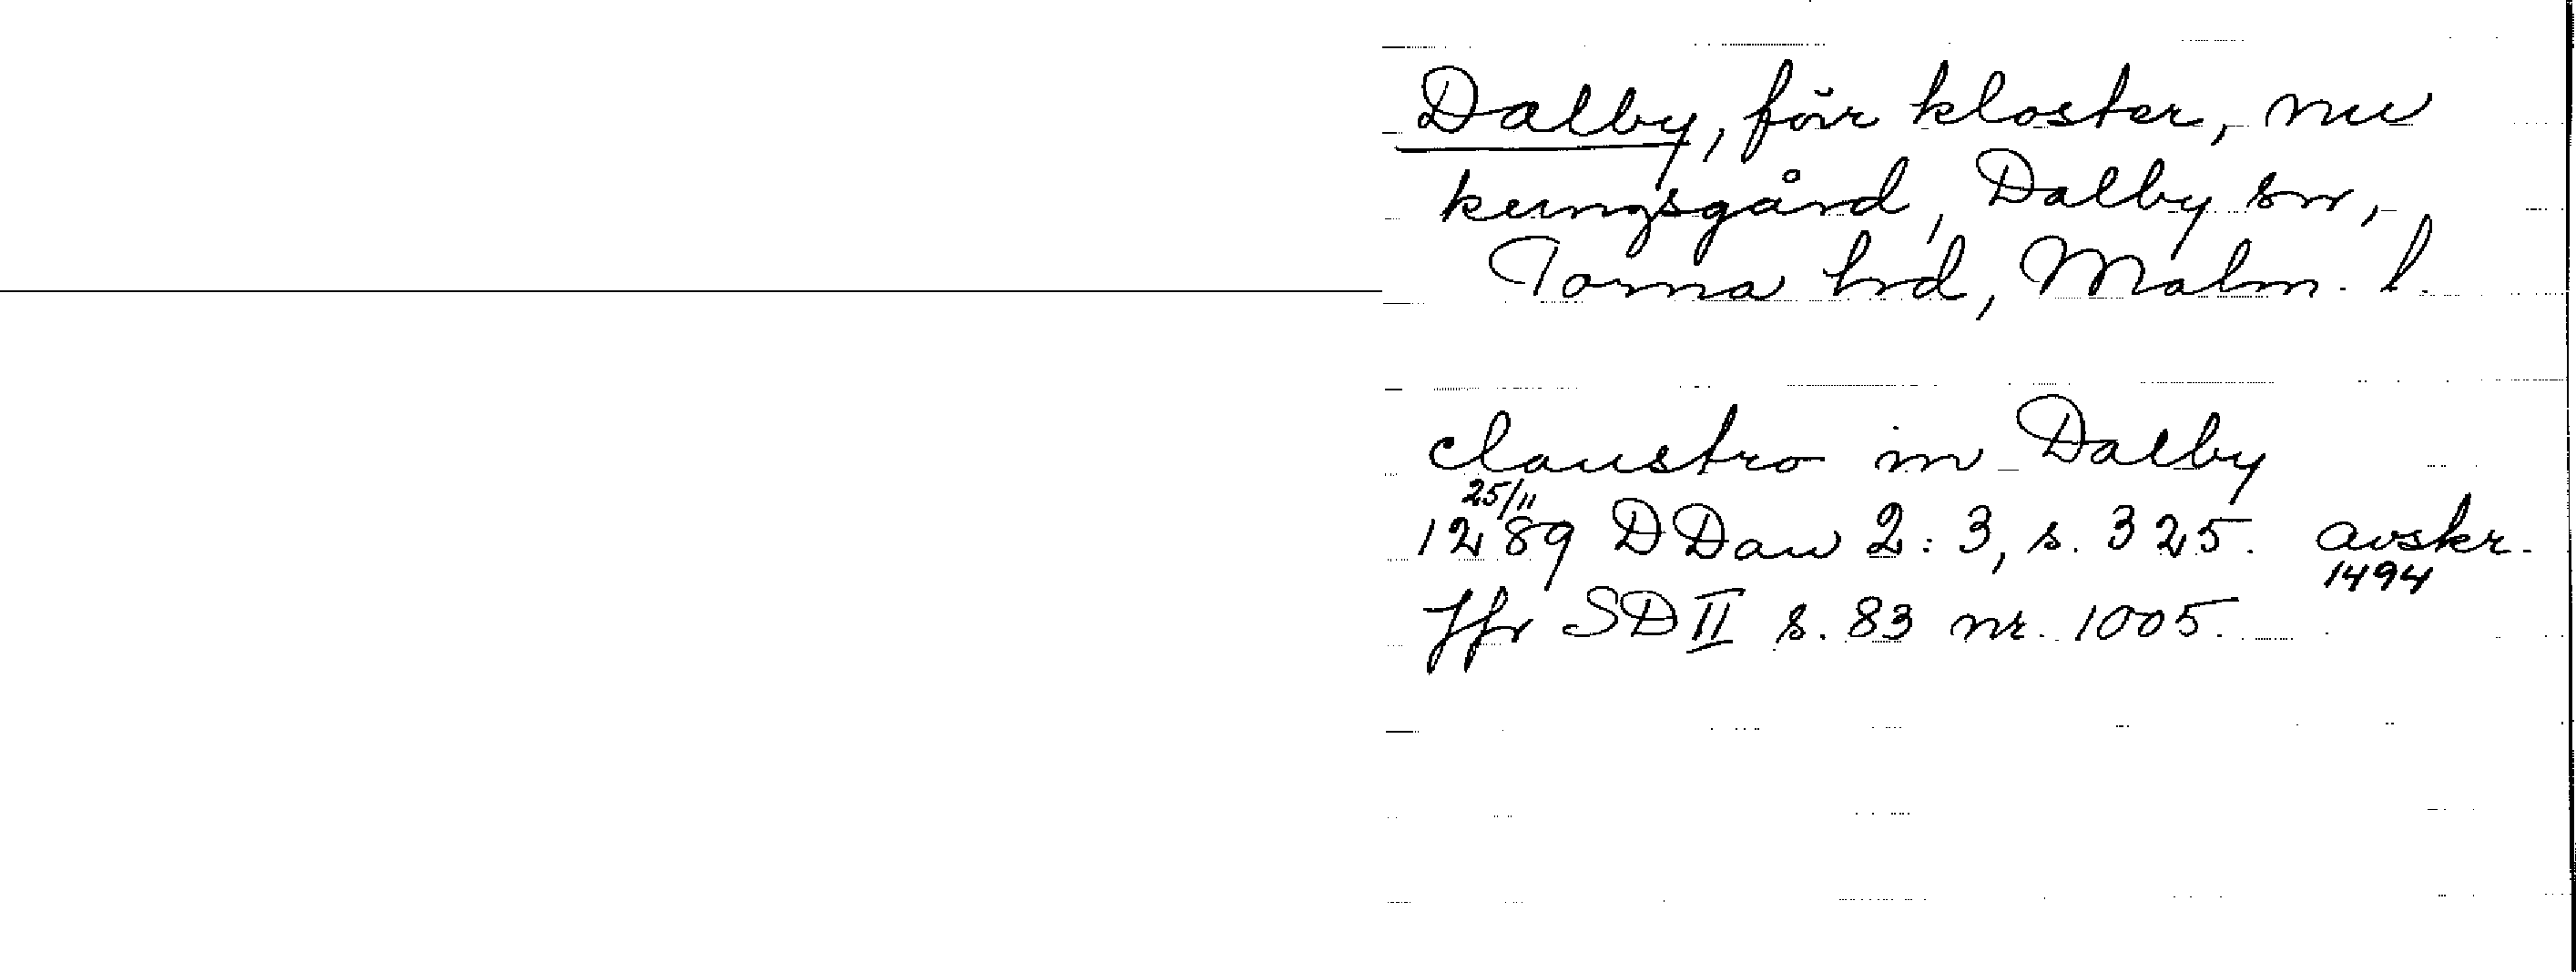 Dalby, förr kloster, nu
kungsgård, Dalby sn,
Torna hd, Malm. l.
claustro in Dalby
25/11
1289 DDan 2:3, s. 325. avskr.
1494
Jfr SD II s. 83 nr. 1005.